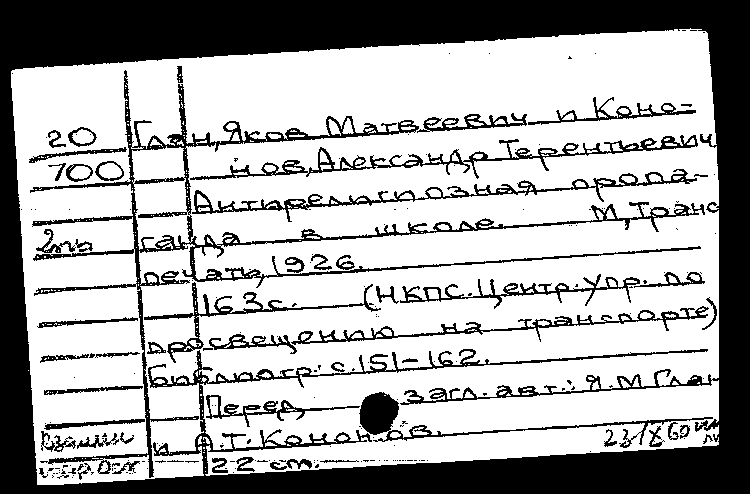 20 Глан, Яков Матвеевич и Коно-
700 нов, Александр Терентьевич
Антирелигиозная пропа-
ганда в школе. М, Транс
печать, 1926.
163 с. (НКПС. Центр. Упр. по
просвещению на транспорте)
Библиогр: с. 151-162.
Перед загл. авт.: Я. М Глан
и А. Т. Кононов.
22 cm.